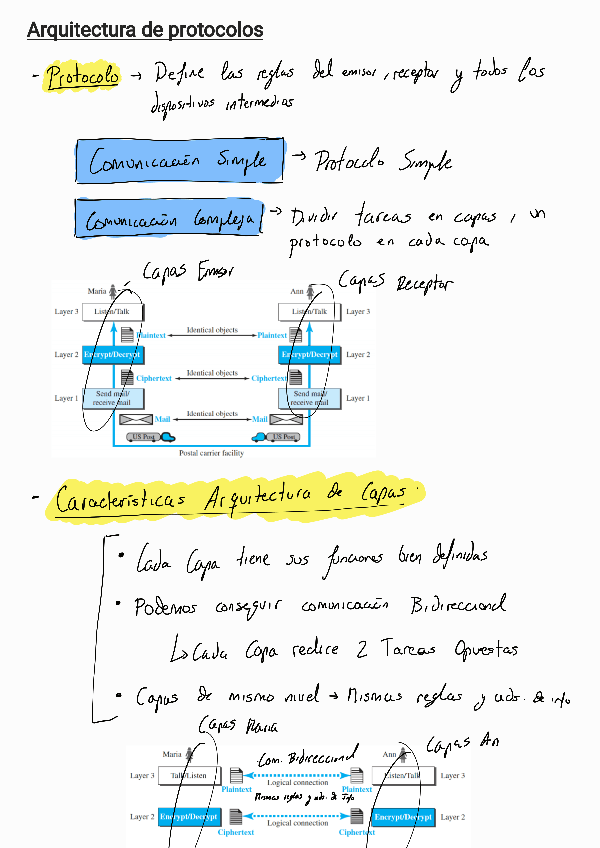 Arquitectura de protocolos
- Protocolo → Define las reglas del emisor, receptor y todos los
dispositivos intermedios
Comunicación Simple → Protocolo Simple
Comunicación Compleja → Dividir tareas en capas, un
protocolo en cada capa
Capas Emisor
Capas Receptor
Maria
Ann
Layer 3 Listen/Talk Listen/Talk Layer 3
Plaintext Identical objects Plaintext
Layer 2 Encrypt/Decrypt Encrypt/Decrypt Layer 2
Ciphertext Identical objects Ciphertext
Layer 1 Send mail/ receive mail Send mail/ receive mail Layer 1
Mail Identical objects Mail
US Post US Post
Postal carrier facility
- Características Arquitectura de Capas.
• Cada Capa tiene sus funciones bien definidas
• Podemos conseguir comunicación Bidireccional
↳ Cada Capa realice 2 Tareas Opuestas
• Capas de mismo nivel → Mismas reglas y uds. de info
Capas Maria
Capas An
Maria
Com. Bidireccional
Ann
Layer 3 Talk/Listen Listen/Talk Layer 3
Plaintext Logical connection Plaintext
Mismas reglas y uds. de Info
Layer 2 Encrypt/Decrypt Encrypt/Decrypt Layer 2
Ciphertext Logical connection Ciphertext